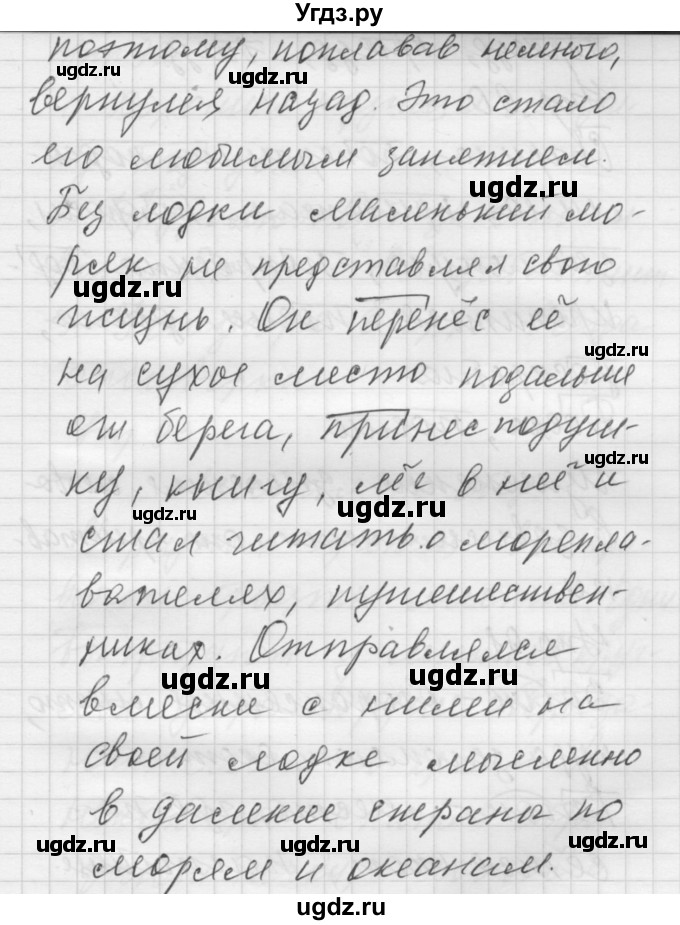 Угдз.ру
поэтому, поплавав немного,
вернулся назад. Это стало
его любимым занятием.
ugdz.ru
Без лодки маленький мо-
ряк не представлял свою
ugdz.ru
жизнь. Он перенёс её
ugdz.ru
на сухое место подальше
от берега, принёс подуш-
ugdz.ru
ку, книгу, лёг в неё и
ugdz.ru ugdz.ru
стал читать о морепла-
вателях, путешествен-
никах. Отправлялся
ugdz.ru ugdz.ru
вместе с ними на
своей лодке мысленно
в далёкие страны по
ugdz.ru ugdz.ru ugdz.ru
морям и океанам.
ugdz.ru